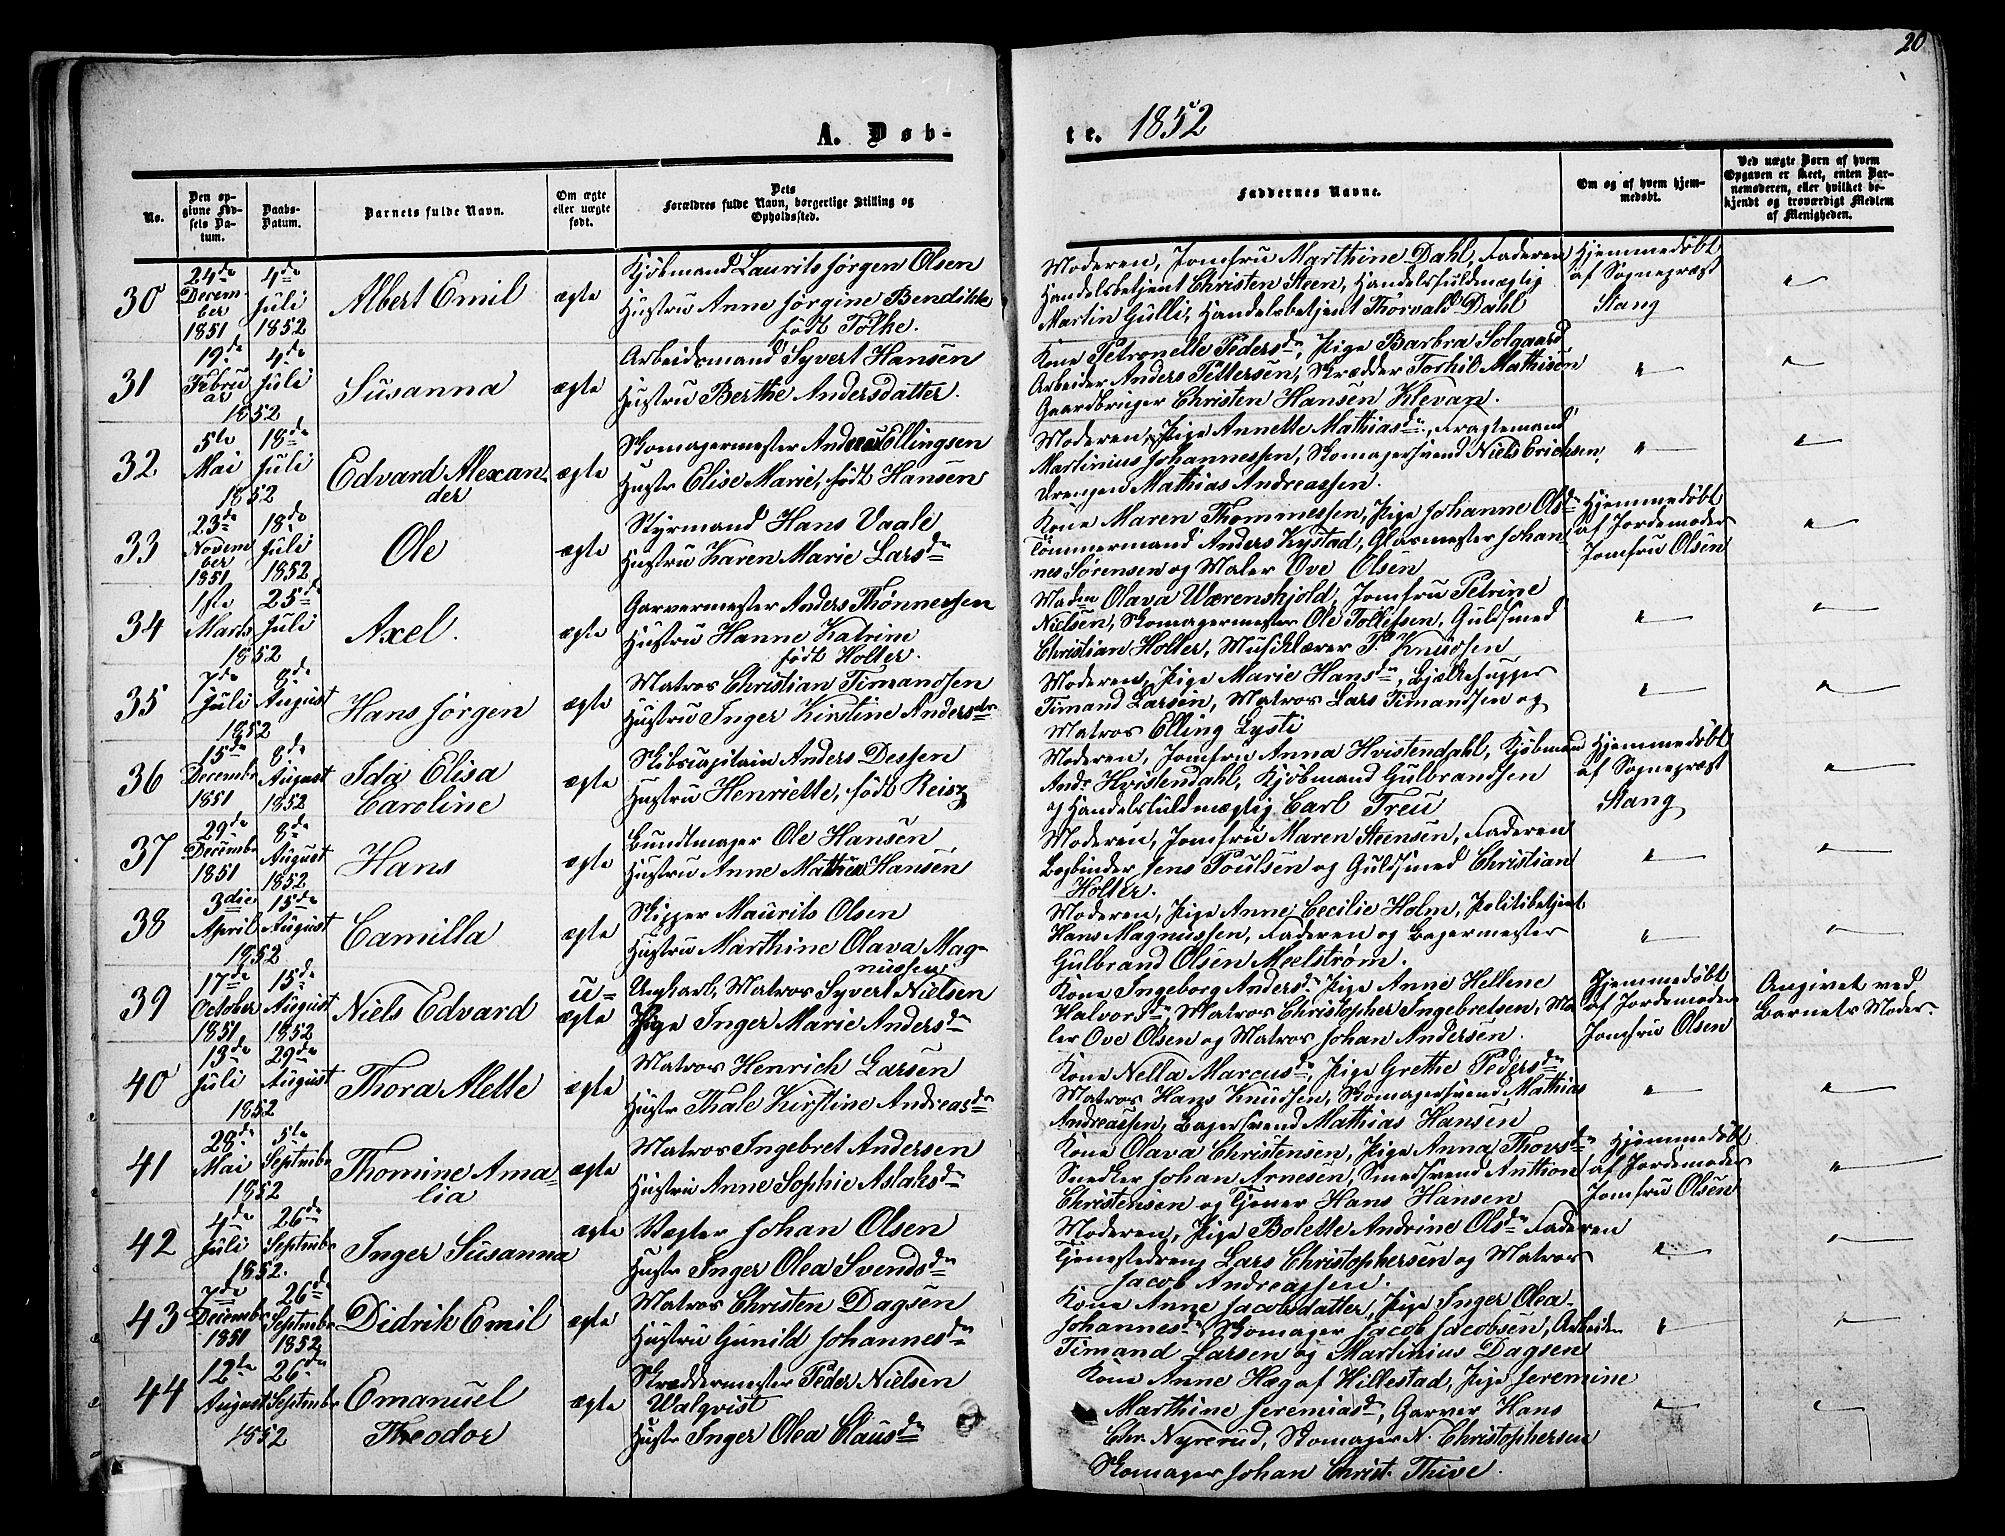 20
A. Døb-
te. 1852
No.
Den op-
givne Fød-
sels Da-
tum.
Daabs-
Datum.
Barnets fulde Navn.
Om ægte
eller uægte
født.
Dets
Forældres fulde Navn, borgerlige Stilling og
Opholdssted.
Faddernes Navne.
Om og af hvem hjem-
medøbt.
Ved uægte Børn af hvem
Opgaven er skeet, enten Bar-
nemoderen, eller hvilket be-
kjendt og troværdigt Medlem
af Menigheden.
30
24de
Decem-
ber
1851
4de
Juli
1852
Albert Emil
ægte
Kjøbmand Laurits Jørgen Olsen
Hustru Anne Jørgine Bendikke
født Tolke.
Moderen, Jomfru Marthine Dahl, Faderen
Handelsbetjent Christen Steen, Handelsfuldmægtig
Martin Gulli, Handelsbetjent Thorvald Dahl
Hjemmedøbt
af Sognepræst
Stang
"
31
19de
Febru
ar
4de
Juli
1852
Susanna
ægte
Arbeidsmand Syvert Hansen
Hustru Berthe Andersdatter.
Kone Petronelle Pedersdr, Pige Barbra Solgaard
Arbeider Anders Pettersen, Skrædder Torkil Mathisen
Gaardbruger Christen Hansen Klevan.
"
"
32
5te
Mai
18de
Juli
1852
Edvard Alexan-
der
ægte
Skomagermester Andreas Ellingsen
Hustr Elise Marie, født Hansen
Moderen, Pige Annette Mathiasdr, Fragtemand
Martinius Johannessen, Skomagersvend Niels Erichsen,
Drengen Mathias Andreassen.
"
"
33
23de
Novem
ber
1851
18de
Juli
1852
Ole
ægte
Styrmand Hans Vaale
Hustru Karen Marie Larsdr
Kone Maren Thommessen, Pige Johanne Olsdr
Tømmermand Anders Kystad, Glasmester Johan-
nes Sørensen og Maler Ove Olsen
Hjemmedøbt
af Jordemoder
Jomfru Olsen
"
34
1ste
Marts
25de
Juli
1852
Axel.
ægte
Garvermester Anders Thønnessen
Hustru Hanne Katrine
født Holter.
Madm Olava Wærenskjold, Jomfru Petrine
Nielsen, Skomagermester Ole Tollefsen, Guldsmed
Christian Holter, Musiklærer P. Knudsen
"
"
35
7de
Juli
8de
August
1852
Hans Jørgen
ægte
Matros Christian Timandsen
Hustru Inger Kirstine Andersdr
Moderen, Pige Marie Hansdr, Bjælkehugger
Timand Larsen, Matros Lars Timandsen og
Matros Elling Lysti
"
"
36
15de
Decembr
1851
8de
August
1852
Ida Elisa
Caroline
ægte
Skibscapitain Anders Dessen
Hustru Henriette, født Reisz
Moderen, Jomfru Anna Hvistendahl, Kjøbmand
Andr Hvistendahl, Kjøbmand Gulbrandsen
og Handelsfuldmægtig Carl Treu
Hjemmedøbt
af Sognepræst
Stang
"
37
29de
Decembr
1851
8de
August
1852
Hans
ægte
Bundtmager Ole Hansen
Hustru Anne Mathea Hansen
Moderen, Jomfru Maren Steensen, Faderen
Bogbinder Jens Poulsen og Guldsmed Christian
Holter.
"
"
38
3die
April
15de
August
1852
Camilla
ægte
Skipper Maurits Olsen
Hustru Marthine Olava Mag-
nussen
Moderen, Pige Anne Cecilie Holm, Politibetjent
Hans Magnussen, Faderen og Bagermester
Gulbrand Olsen Meelstrøm.
"
"
39
17de
October
1851
15de
August
1852
Niels Edvard
u-
ægte
Ungkarl, Matros Syvert Nielsen
Pige Inger Marie Andersdr
Kone Ingeborg Andersdr Pige Anne Hellene
Halvordr, Matros Christopher Ingebretsen, Ma
ler Ove Olsen og Matros Johan Andersen.
Hjemmedøbt
af Jordemoder
Jomfru Olsen
Angivet ved
Barnets Moder.
40
13de
Juli
29de
August
1852
Thora Alette
ægte
Matros Henrich Larsen
Hustr Thale Kirstine Andreasdr
Kone Nella Marcusdr, Pige Grethe Pedersdr
Matros Hans Knudsen, Skomagersvend Mathias
Andreassen, Bagersvend Mathias Hansen
"
"
41
28de
Mai
5te
Septmbr
1852
Thomine Ama-
lia
ægte
Matros Ingebret Andersen
Hustru Anne Sophie Aslaksdr
Kone Olava Christensen, Pige Anna Thovsdr
Snedker Johan Arnesen, Smedsvend Anthon
Christensen og Tjener Hans Hansen
Hjemmedøbt
af Jordemoder
Jomfru Olsen
"
42
4de
Juli
26de
Septmbr
1852.
Inger Susanna
ægte
Vægter Johan Olsen
Hustr Inger Olea Svendsdr
Moderen, Pige Bolette Andrine Olsdr Faderen
Tjenestedreng Lars Christophersen og Matros
Jacob Andreassen.
"
"
43
7de
Decembr
1851
26de
Septmbr
1852
Didrik Emil
ægte
Matros Christen Dagsen
Hustru Gunild Johannesdr
Kone Anne Jacobsdatter, Pige Inger Olea
Johannesdr, Skomager Jacob Jacobsen, Arbeider
Timand Larsen og Martinius Dagsen
"
"
44
12te
August
26de
Septmbr
1852
Emanuel
Theodor
ægte
Skræddermester Peder Nielsen
Walqvist
Hustr Inger Olea Clausdr
Kone Anne Hægaf Hillestad, Pige Jeremine
Marthine Jeremiasdr, Garver Hans
Chr. Nyrerud, Skomager N. Christophersen
Skomager Johan Christ. Thive.
"
"